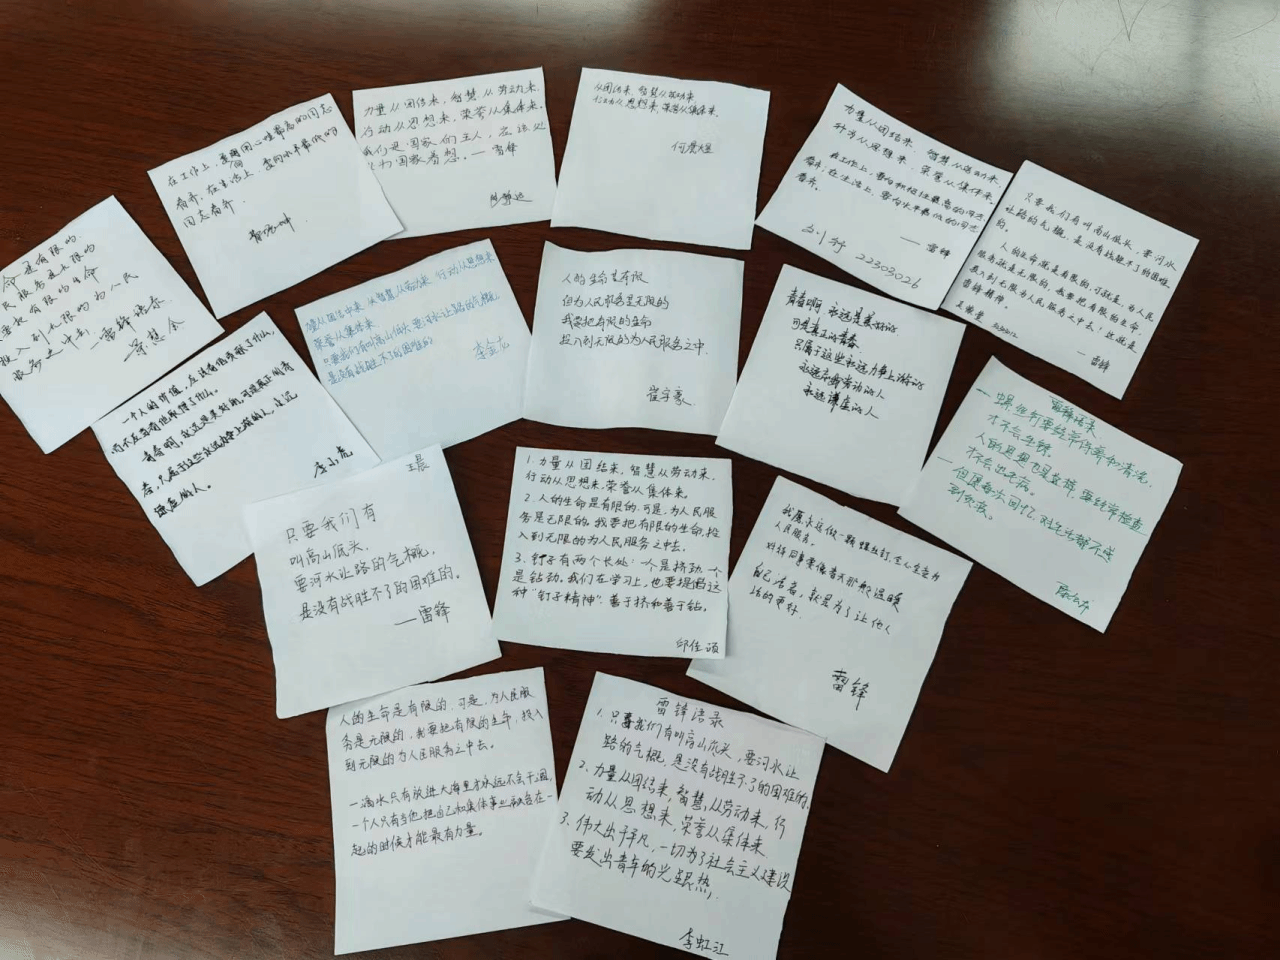 在工作上,要用心
看齐,在生活上,要向水平最低的
同志看齐。
力量从团结来,智慧从劳动来,
行动从思想来,荣誉从集体来。
我们是国家的主人,应该处
处为国家着想。—雷锋
从团结来,智慧从劳动来
行动从思想来,荣誉从集体来。
力量从团结来,智慧从劳动来,
行为从思想来,荣誉从集体来。
看齐,在生活上,要向水平最低的同志
看齐。
——雷锋
22303026
只要我们有叫高山低头,要河水
让路的气概,是没有战胜不了的困难
的。
人的生命就是有限的,可就是,为人民
服务就是无限的,我要把有限的生命,
投入到无限为人民服务之中去!这就是
雷锋精神。
—雷锋
命是有限的,
民服务是无限的
要把有限的生命
投入到无限的为人民
服务之中去。
—雷锋语录
一个人的价值,应该看他贡献了什么,
而不应当看他取得了什么。
青春啊,永远是美好的,可是真正的青
春,只属于这些永远力争上游的人,永远
谦虚的人。
荣誉从集体来
只要我们有叫高山低头,要河水让路的气概,
是没有战胜不了的困难的
李金龙
人的生命是有限
但为人民服务是无限的
我要把有限的生命
投入到无限的为人民服务之中.
崔宇豪
青春啊 永远是美好的
可是真正的青春
只属于这些永远力争上游的
永远忘我劳动的人
永远谦虚的人
雷锋语录
一螺丝钉要经常保养和清洗,
才不会生锈。
人的思想也是这样,要经常检查
才不会出毛病。
王晨
只要我们有
叫高山低头,
要河水让路的气概,
是没有战胜不了的困难的。
——雷锋
1.力量从团结来,智慧从劳动来,
行动从思想来,荣誉从集体来。
2.人的生命是有限的,可是,为人民服
务是无限的,我要把有限的生命,投
入到无限的为人民服务之中去。
3.钉子有两个长处:一个是挤劲,一个
是钻劲。我们在学习上,也要提倡这
种“钉子精神”,善于挤和善于钻。
邱佳颂
我愿永远做一颗螺丝钉,全心全意为
人民服务。
对待同事要像春天般的温暖
自己活着,就是为了让他人
活的更好.
雷锋
人的生命是有限的,可是,为人民服
务是无限的,我要把有限的生命,投入
到无限的为人民服务之中去。
一滴水只有放进大海里才永远不会干涸,
一个人只有当他把自己和集体事业融合在一
起的时候才能最有力量。
雷锋语录
1.只要我们有叫高山低头,要河水让
路的气概,是没有战胜不了的困难的.
2.力量从团结来,智慧从劳动来,行
动从思想来,荣誉从集体来
3.伟大出于平凡,一切为了社会主义建设
要发出青年的光跟热,
李虹江